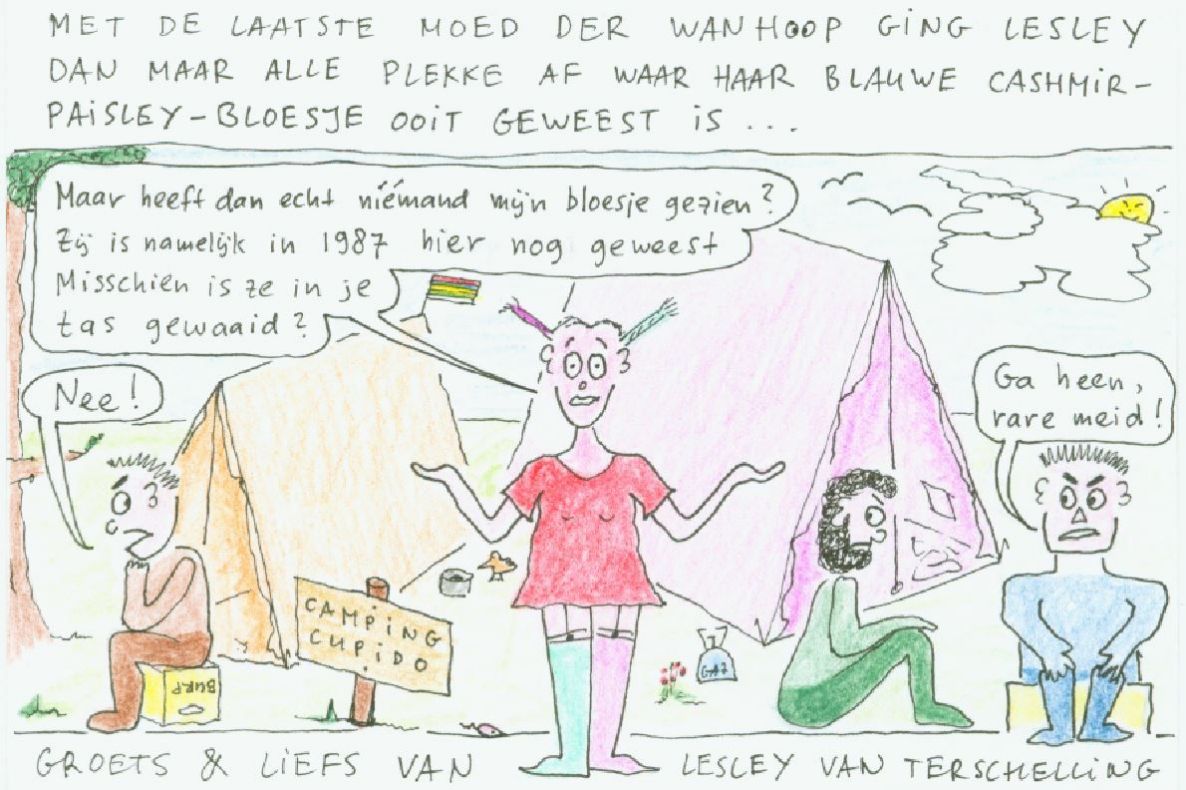 MET DE LAATSTE MOED DER WANHOOP GING LESLEY
DAN MAAR ALLE PLEKKE AF WAAR HAAR BLAUWE CASHMIR-
PAISLEY-BLOESJE OOIT GEWEEST IS ...
Maar heeft dan echt níémand mijn bloesje gezien?
Zij is namelijk in 1987 hier nog geweest
Misschien is ze in je
tas gewaaid?
Nee!
Ga heen,
rare meid!
CAMPING
CUPIDO
BURP
GAZ
GROETS & LIEFS VAN LESLEY VAN TERSCHELLING